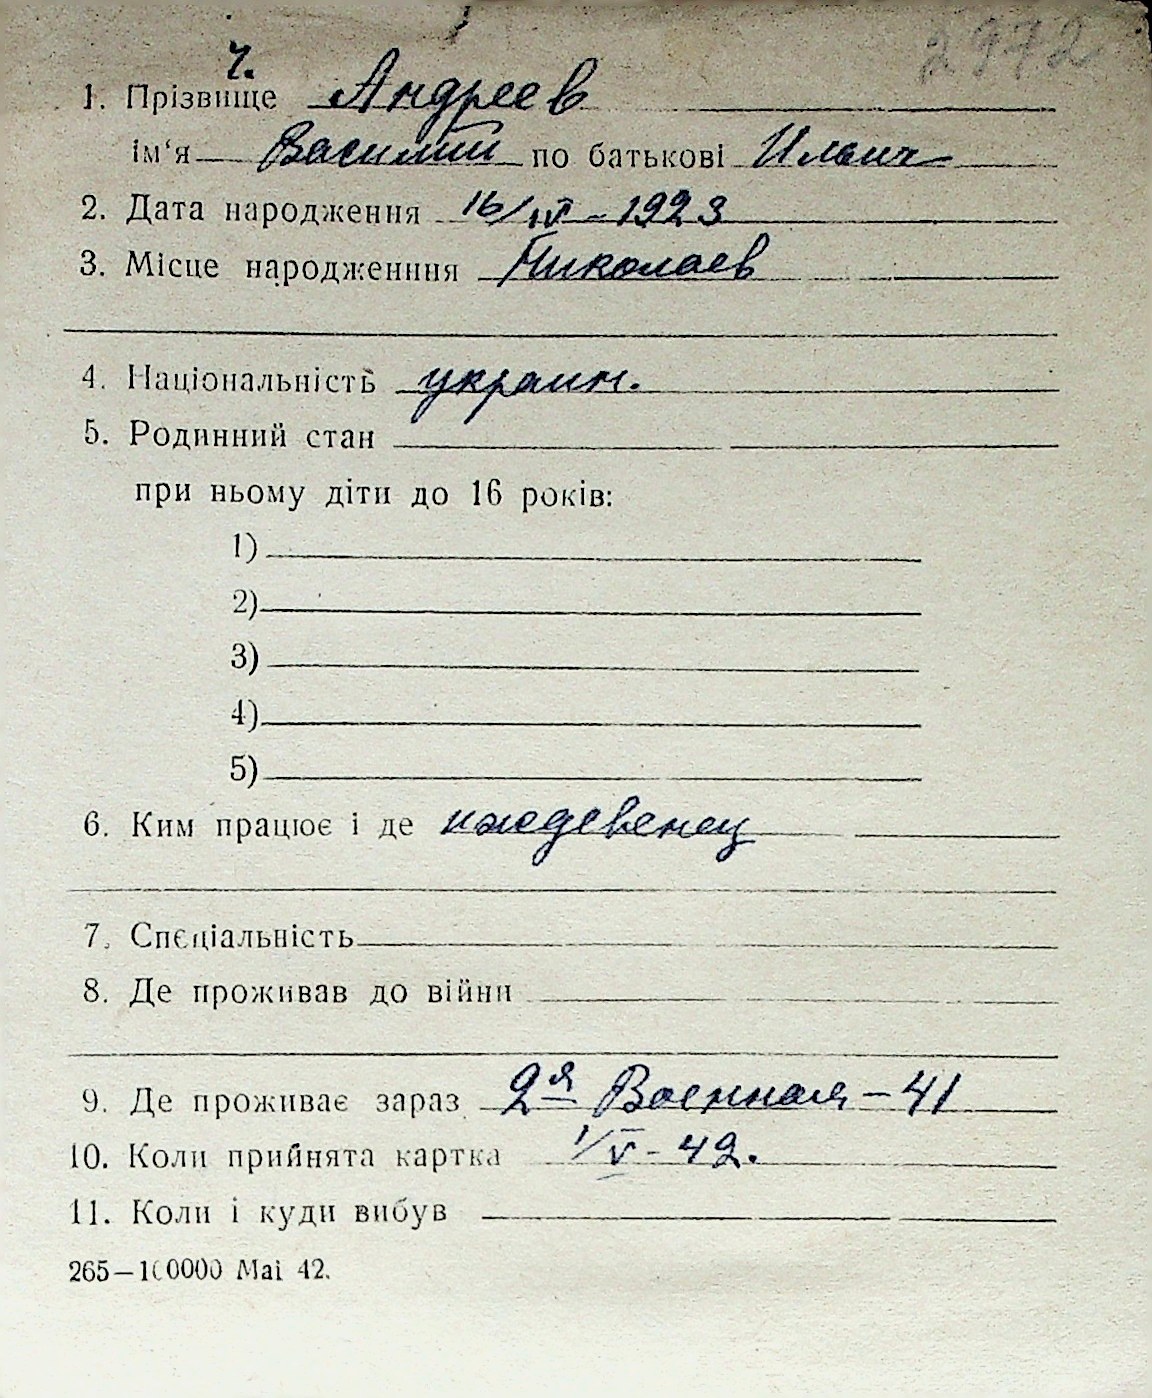 2972
ч.
1. Прізвище Андреев
ім'я Василий по батькові Ильич
2. Дата народження 16/IV - 1923
3. Місце народженння Николаев
4. Національність украин.
5. Родинний стан
при ньому діти до 16 років:
1)
2)
3)
4)
5)
6. Ким працює і де иждевенец
7. Спеціальність
8. Де проживав до війни
9. Де проживає зараз 2я Военная - 41
10. Коли прийнята картка 1/V - 42.
11. Коли і куди вибув
265—100000 Mai 42.